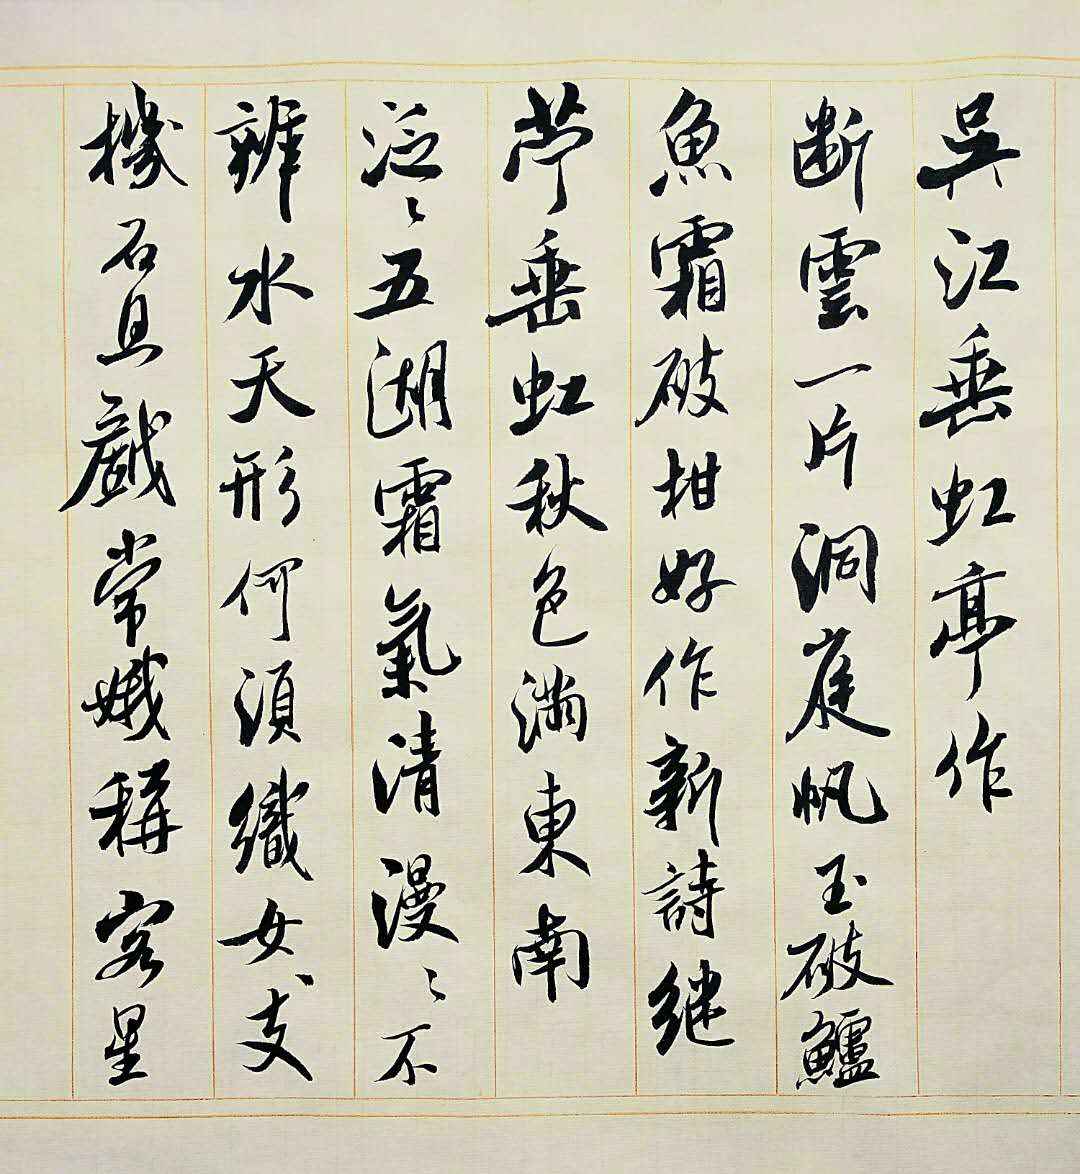 吳江垂虹亭作
断雲一片洞庭帆玉破鱸
魚霜破柑好作新詩継
苧垂虹秋色満東南
泛〻五湖霜氣清漫〻不
辨水天形何須織女支
機石且戲常娥稱客星